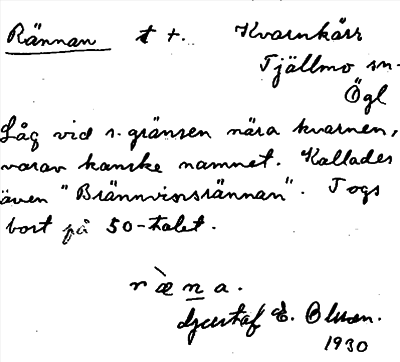 Rännan t +. Kvarnkärr
Tjällmo sn.
Ögl
Låg vid s. gränsen nära kvarnen,
varav kanske namnet. Kallades
även "Brännvinsrännan". Togs
bort på 50-talet.
ræ̀na.
Gustaf E. Olsson.
1930